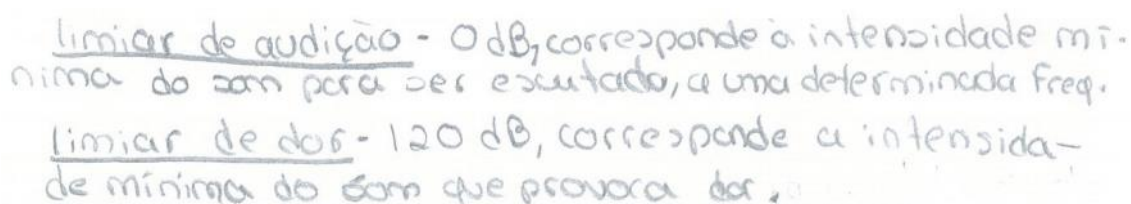 limiar de audição - 0 dB, corresponde à intensidade mí-
nima do som para ser escutado, a uma determinada freq.
limiar de dor - 120 dB, corresponde a intensida-
de mínima do som que provoca dor.